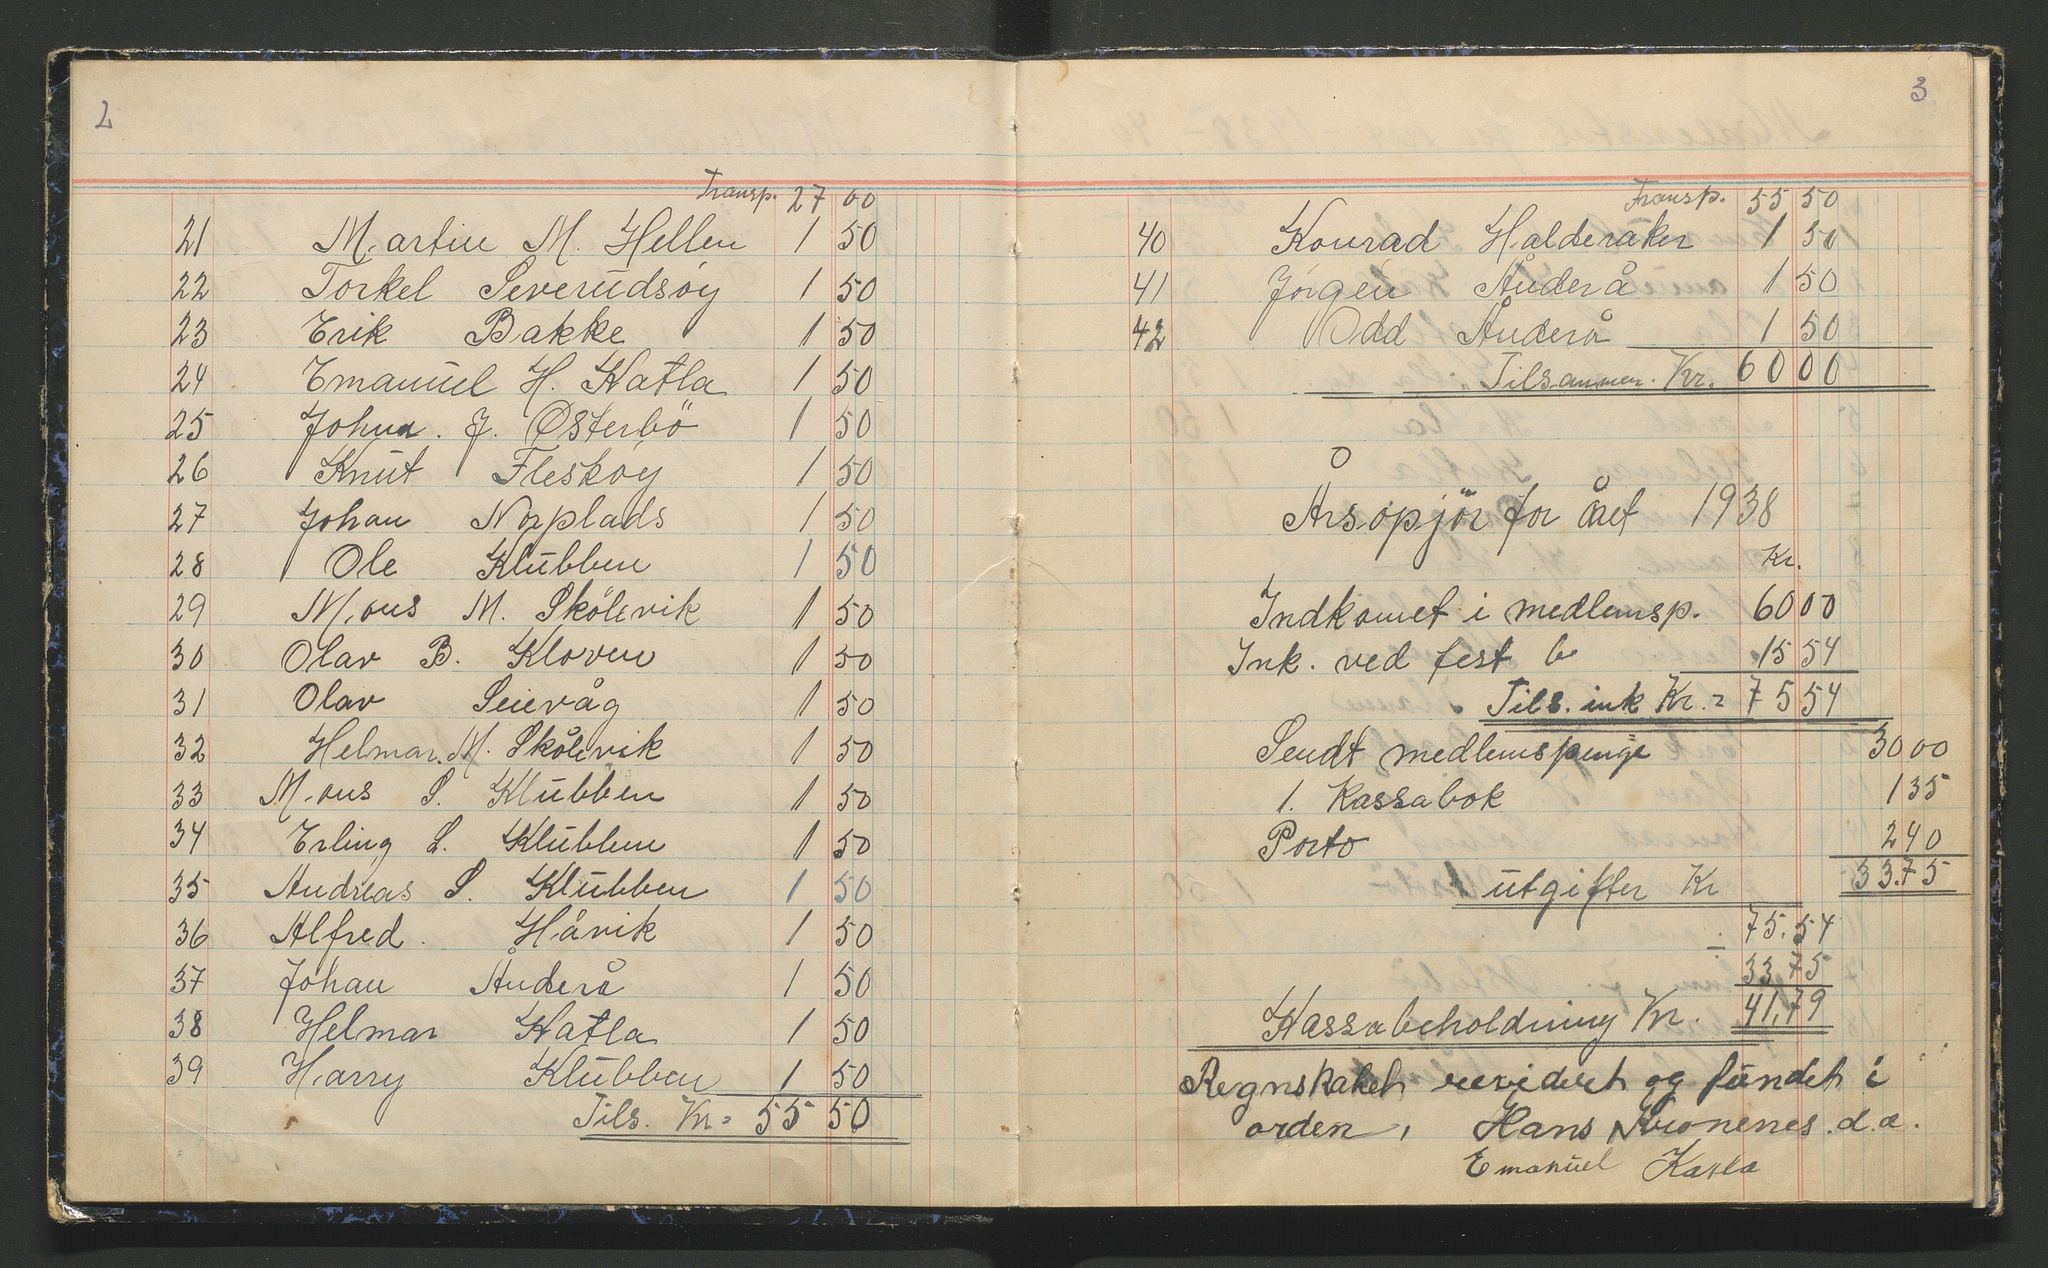 2
Transp. 27 00
21 Martin M. Hellen 1 50
22 Torkel Severudsøy 1 50
23 Erik Bakke 1 50
24 Emanuel H. Katla 1 50
25 Johan. J. Østerbö 1 50
26 Knut Fleskøy 1 50
27 Johan Norplads 1 50
28 Ole Klubben 1 50
29 Mons M. Skölevik 1 50
30 Olav B. Kloven 1 50
31 Olav Seievåg 1 50
32 Helmar. M. Skålevik 1 50
33 Mons S. Klubben 1 50
34 Erling S. Klubben 1 50
35 Andreas S. Klubben 1 50
36 Alfred. Håvik 1 50
37 Johan Anderå 1 50
38 Helmar Katla 1 50
39 Harry Klubben 1 50
Tils. Kr = 55 50
3
Transp. 55 50
40 Konrad Halderaker 1 50
41 Jørgen Ånderå 1 50
42 Odd Ånderå 1 50
Tilsammen. Kr. 60 00
Årsopjör for året 1938
Kr.
Indkomet i medlemsp. 60 00
Ink. ved fest 15 54
Tils. ink Kr. = 75 54
Sendt medlemspenge 30 00
1. Kassabok 1 35
Porto 2 40
utgifter Kr 33.75
75.54
33 75
Kassabeholdning Kr. 41,79
Regnskabet revideret og fundet i
orden, Hans d.æ.
Emanuel Katla